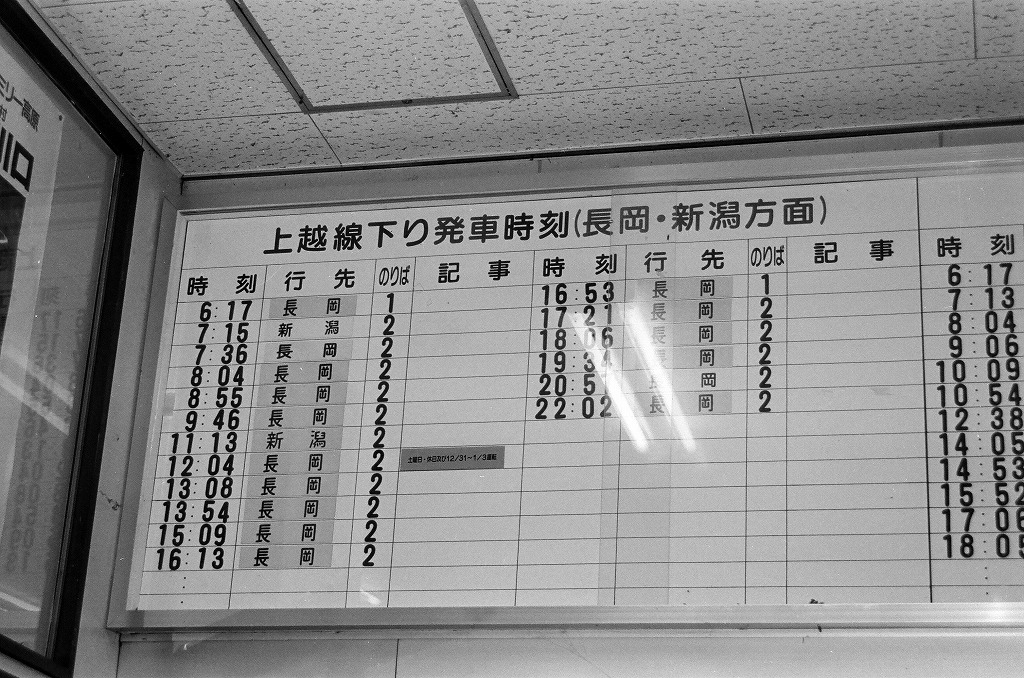 ミリー高原
村
川口
上越線下り発車時刻(長岡・新潟方面)
時刻 行先 のりば 記事 時刻 行先 のりば 記事
6:17 長岡 1
7:15 新潟 2
7:36 長岡 2
8:04 長岡 2
8:55 長岡 2
9:46 長岡 2
11:13 新潟 2
12:04 長岡 2 土曜日・休日及び12/31～1/3運転
13:08 長岡 2
13:54 長岡 2
15:09 長岡 2
16:13 長岡 2
16:53 長岡 1
17:21 長岡 2
18:06 長岡 2
19:34 長岡 2
20:5 長岡 2
22:02 長岡 2
時刻
6:17
7:13
8:04
9:06
10:09
10:54
12:38
14:05
14:53
15:52
17:06
18:05